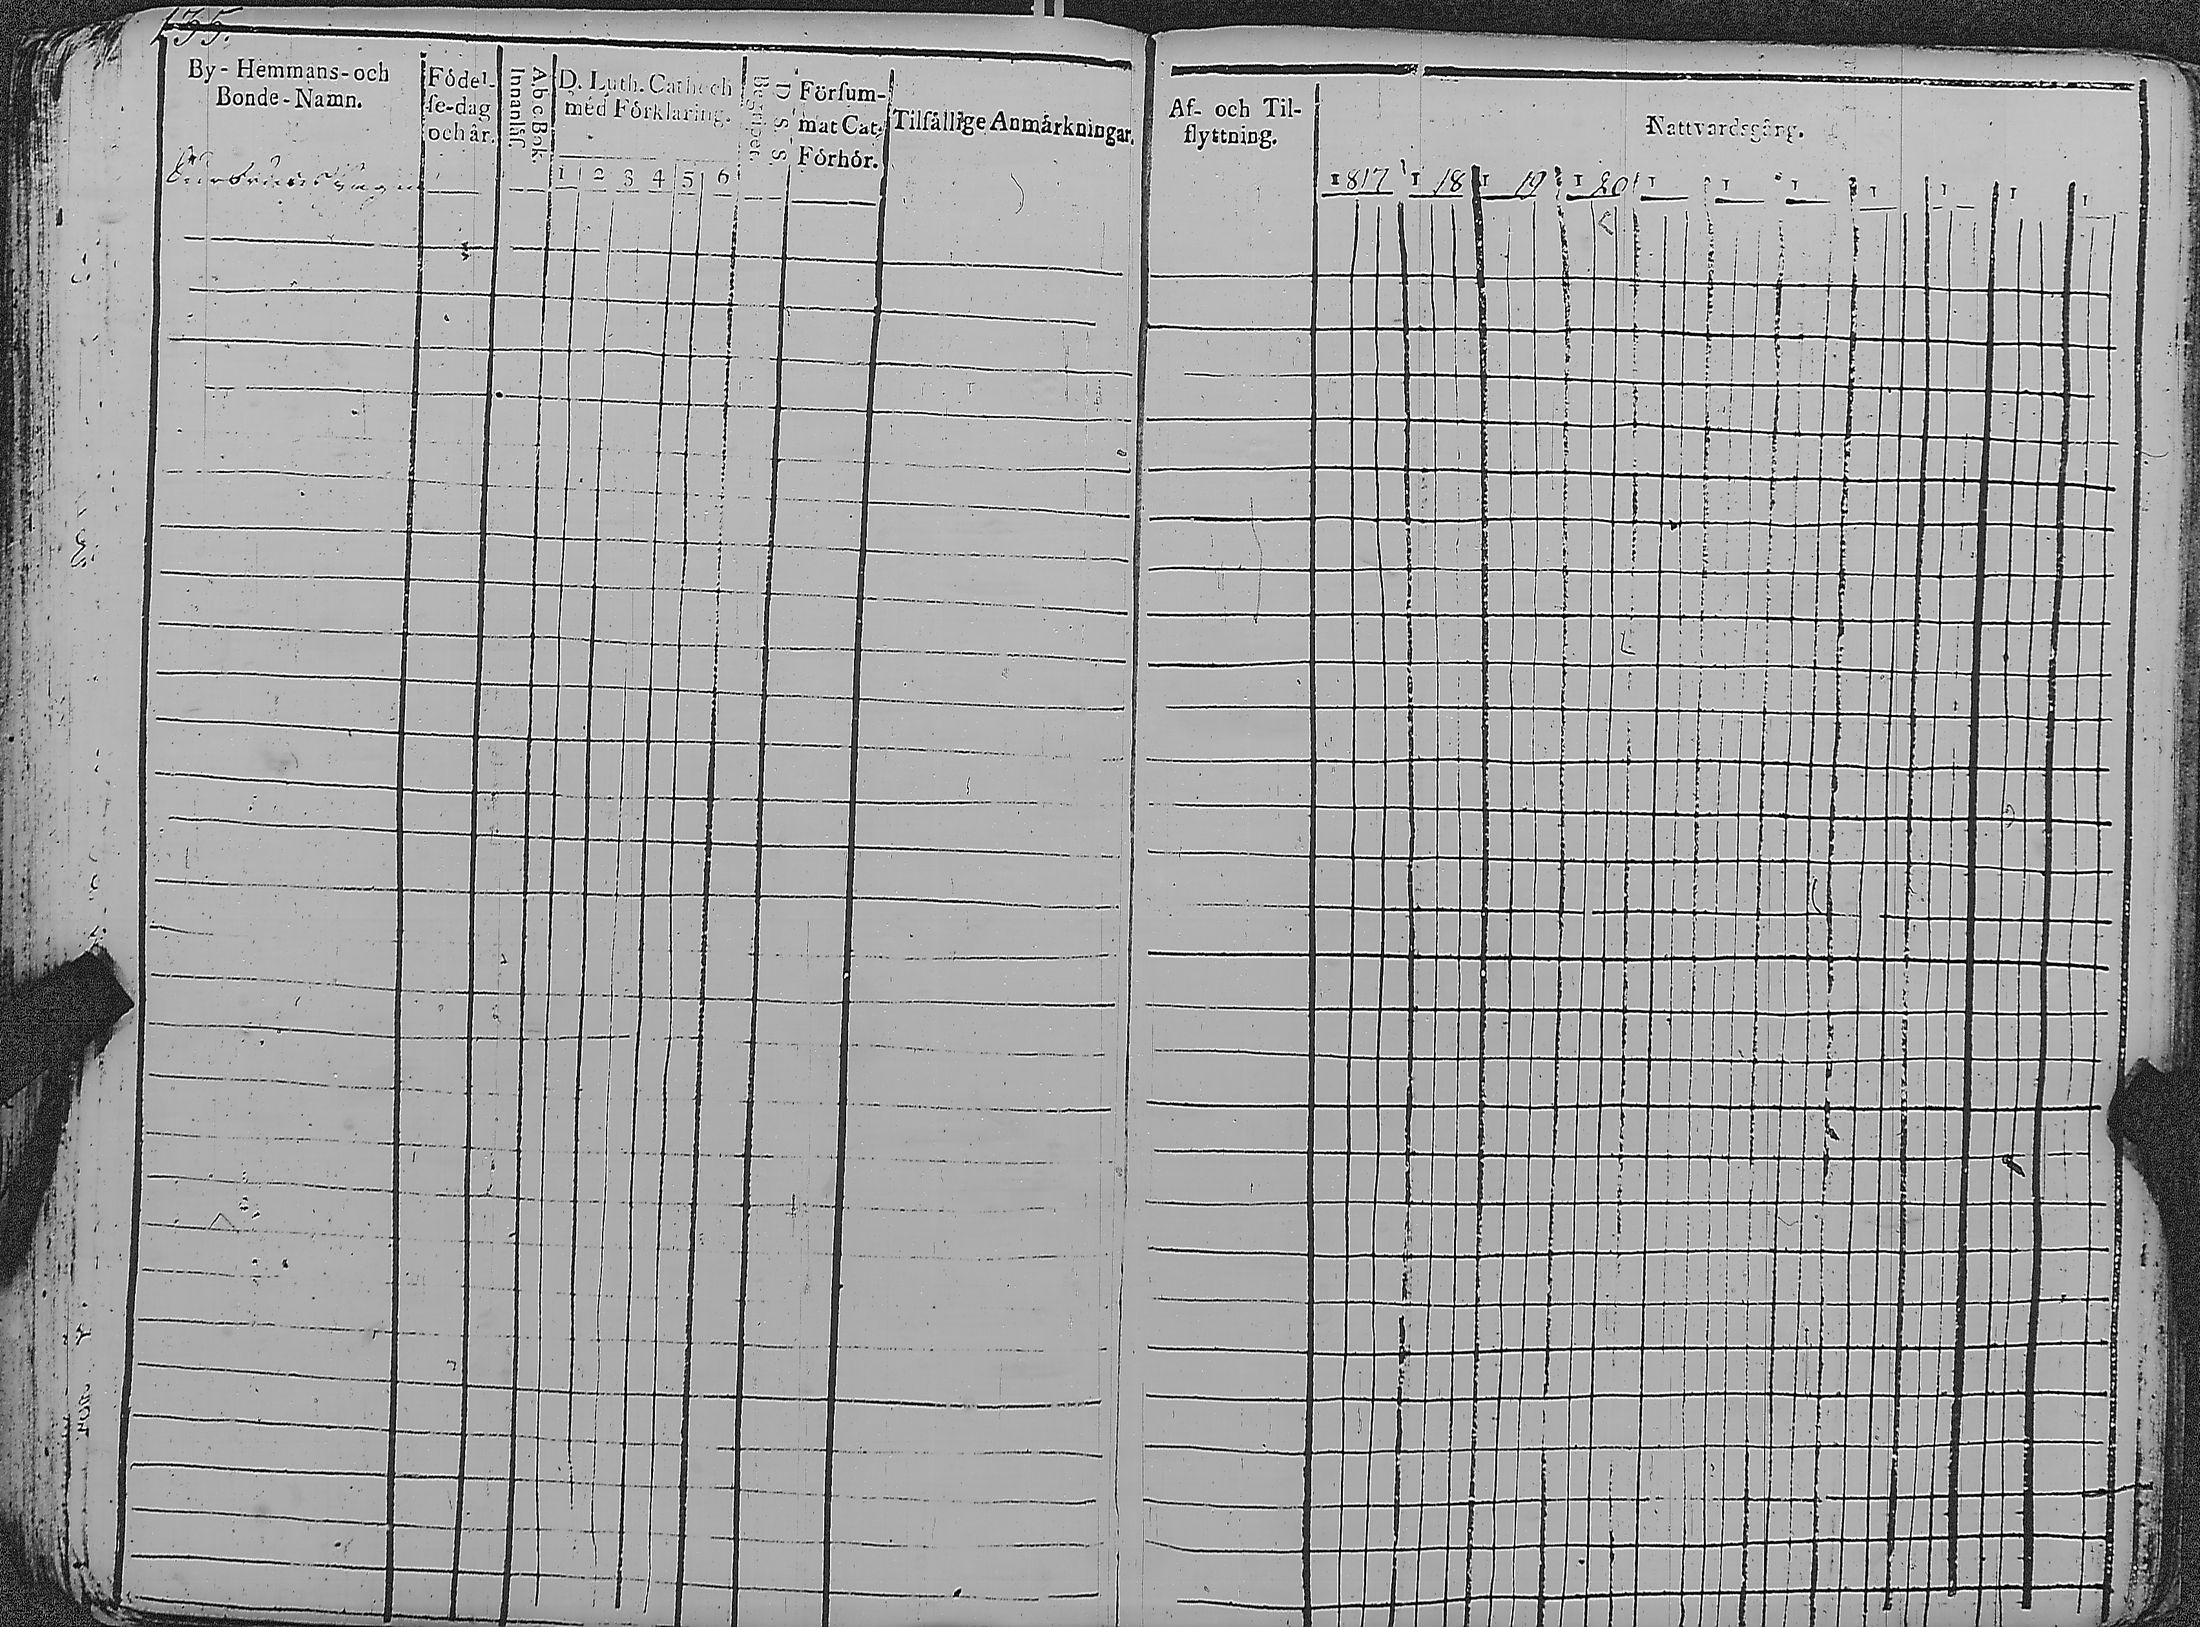 135.
By- Hemmans- och
Bonde-Namn.
Födel-
se-dag
och år.
Abc Bok.
Innanläs.
D. Luth. Cathech
med Förklaring.
1 2 3 4 5 6
Begriper.
D. S. S
Försum-
mat Cat.
Förhör.
Tilfällige Anmärkningar.
Af- och Til-
flyttning.
Nattvardsgång.
1817 1 18 1 19 1 20 1 1 1 1 1 1 1